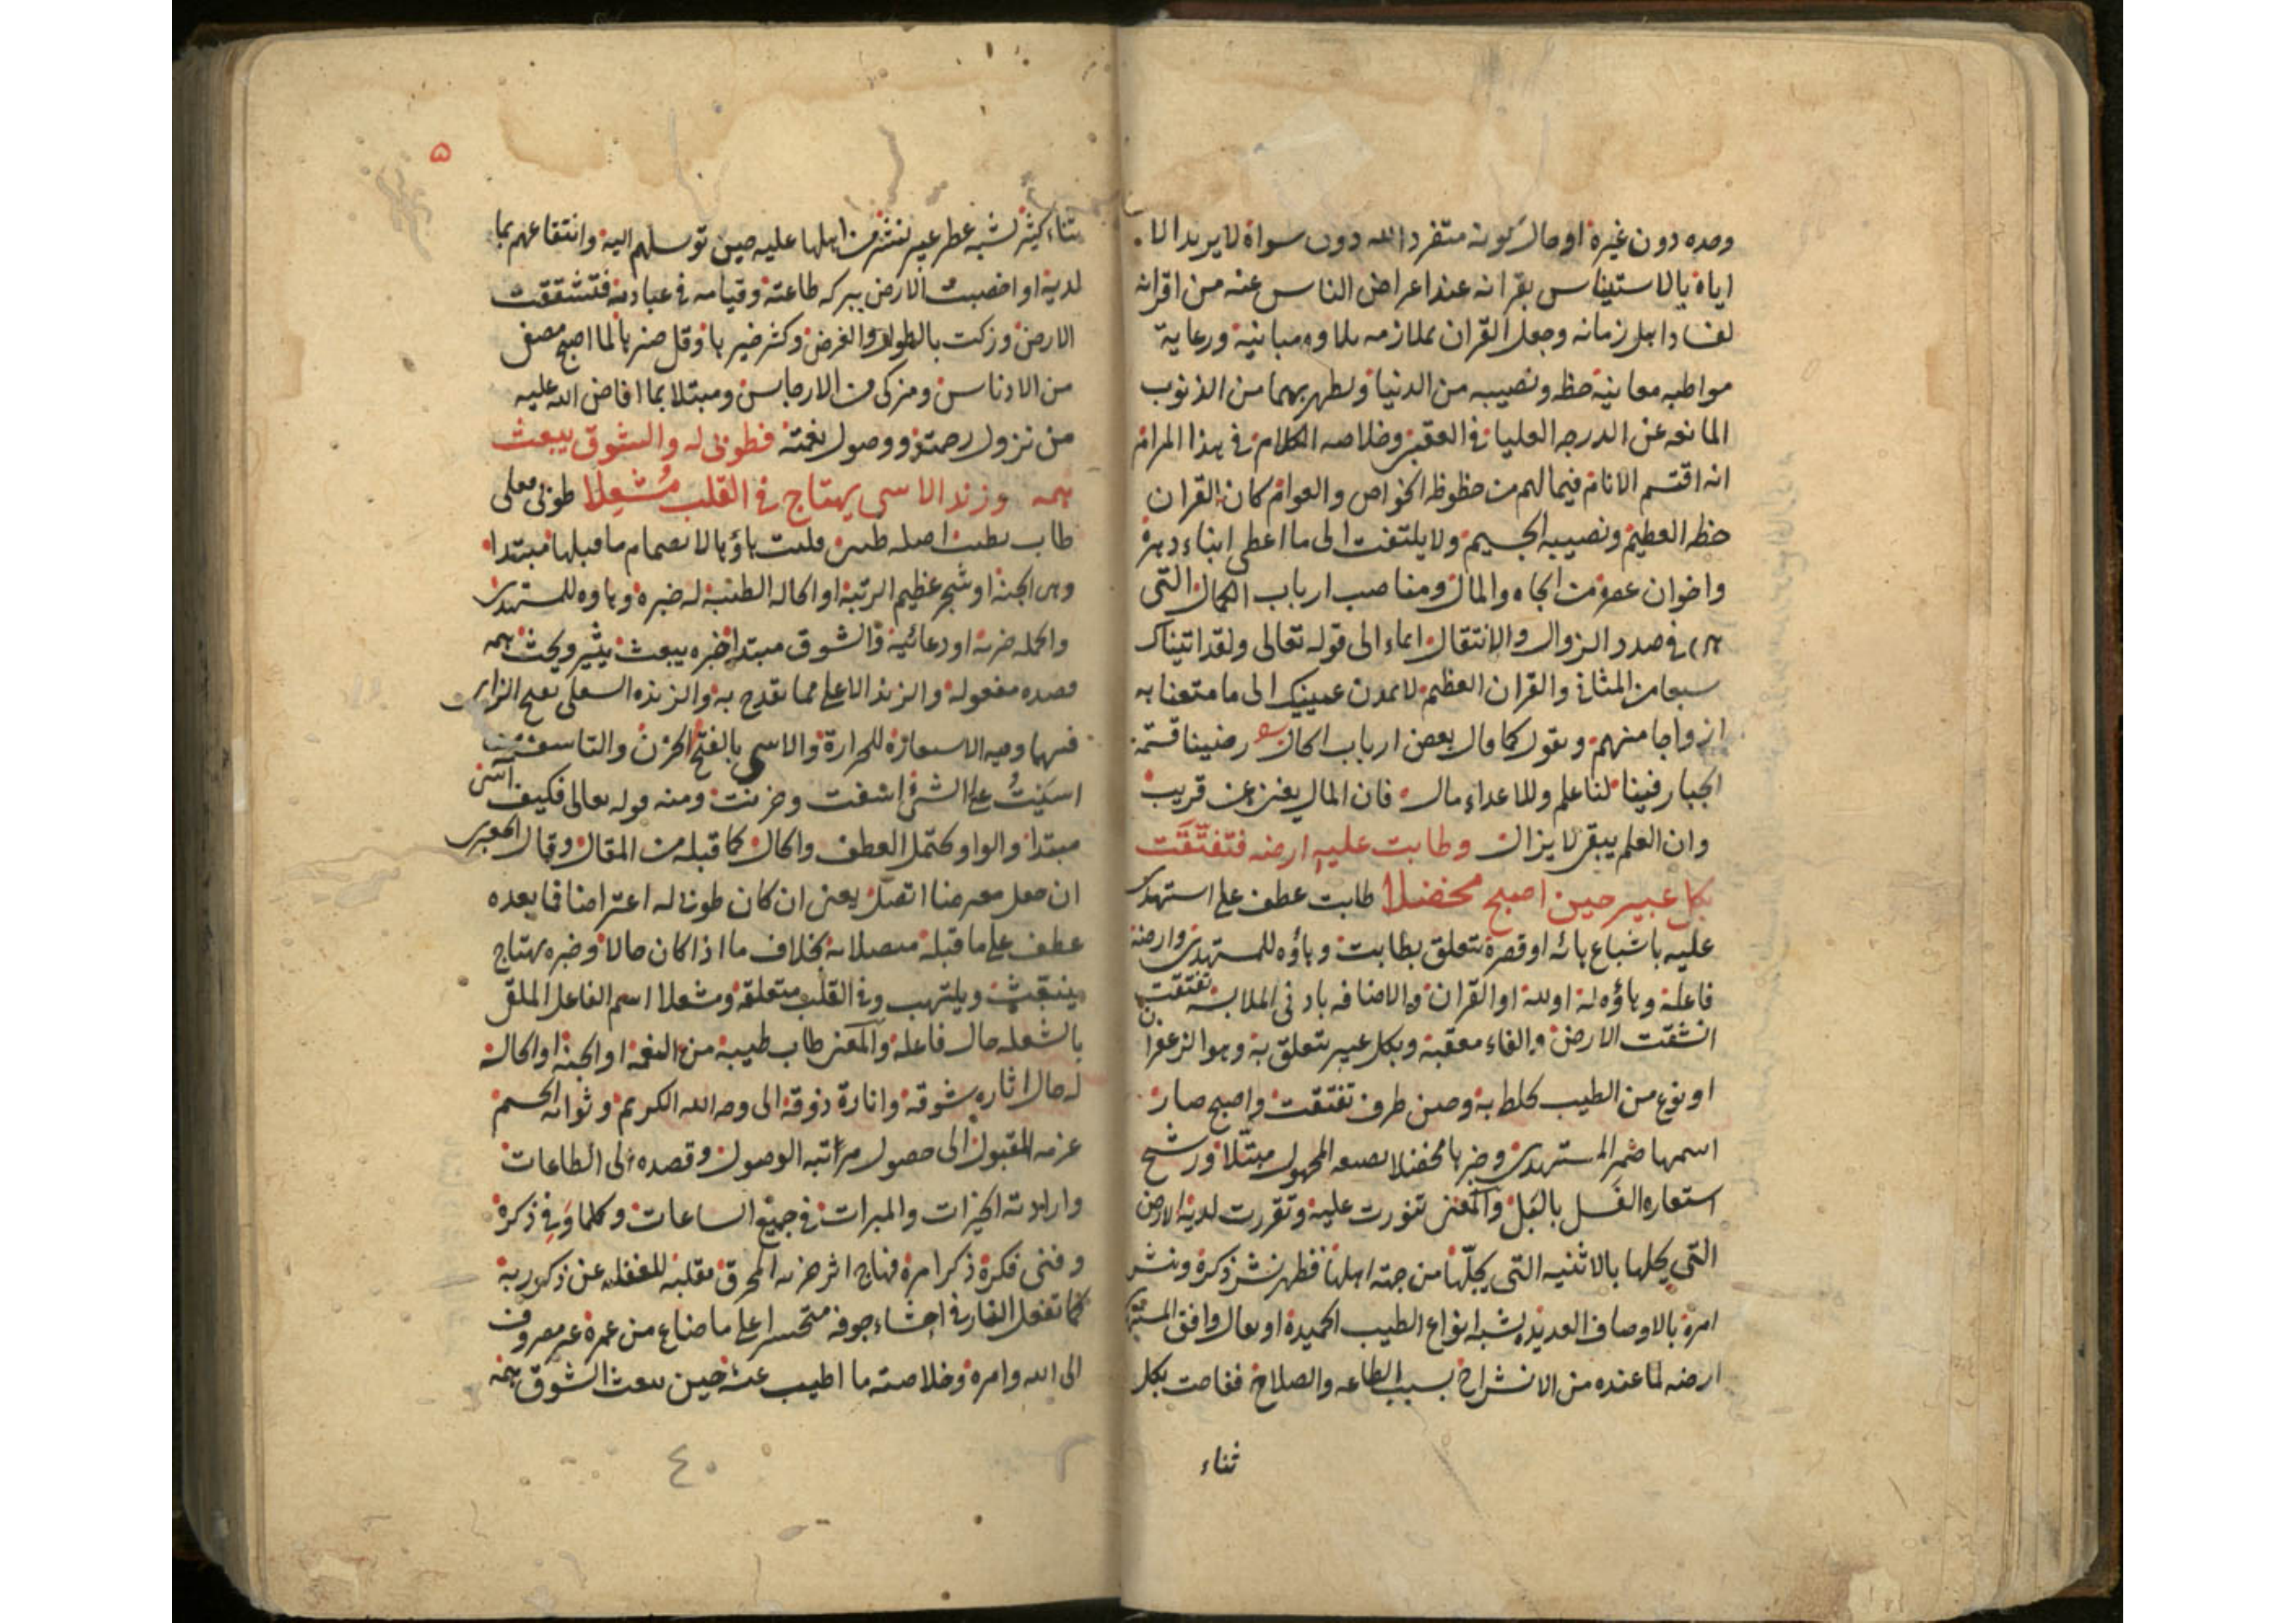 وحده دون غيره او حال كونه متفردا لله دون سواه لا يريد الا
اياه بالاستيناس بقرانه عند اعراض الناس عنه من اقرانه
لفساد اهل زمانه وجعل القران بملازمه تلاوه مبانيه ورعاية
مواظبه معانيه حظه ونصيبه من الدنيا وتطهر بهما من الذنوب
المانعه عن الدرجه العليا في العقبى وخلاصه الكلام في هذا المرام
انه اقتسم الانام فيما لهم من حظوظ الخواص والعوام كان القران
حظه العظيم ونصيبه الجسيم ولا يلتفت الى ما اعطى ابناء دهره
واخوان عصره من الجاه والمال ومناصب ارباب الكمال التي
هي في صدد الزوال والانتقال ايماء الى قوله تعالى ولقد اتيناك
سبعا من المثاني والقران العظيم لا تمدن عينيك الى ما متعنا به
ازواجا منهم ويقول كما قال بعض ارباب الحال رضينا قسمة
الجبار فينا لنا علم وللاعداء مال فان المال يفنى عن قريب
وان العلم يبقى لا يزال وطابت عليه ارضه فتفتقت
بكل عبير حين اصبح مخضلا طابت عطف على استهدى
عليه باشباع هائه او قصره تتعلق بطابت وهاؤه للمستهدي وارضه
فاعله وهاؤه له او لله او القران والاضافه بادنى الملابسه تفتقت
انشقت الارض والفاء معقبة وبكل عبير تتعلق به وهو الزعفران
او نوع من الطيب يخلط به وحين ظرف تفتقت واصبح صار
اسمها ضمير المستهدي وخبرها مخضلا بصيغه المجهول مبتلا ورشح
استعاره بالبلل والمعنى تنورت عليه وتقررت لديه الارض
التي يحلها بالاثنيه التي يحلها من جهة اهلها فظهر نشر ذكره ونشر
امره بالاوصاف العديده يشبه انواع الطيب الحميدة او يقال وافق
ارضه لما عنده من الانشراح بسبب الطاعه والصلاح ففاحت بكل
ثناء
۵
ثناء كثير يشبه عطر عبير نشر من اهلها عليه حين توسلهم اليه وانتفاعهم بما
لديه او اخصبت الارض ببركه طاعته وقيامه في عبادته فتشققت
الارض وزكت بالطول والعرض وكثر خيرها وقل ضرها لما اصبح مصفى
من الادناس ومزكى من الارجاس ومبتلا بما افاض الله عليه
من نزول رحمته ووصول نعمته فطوبى له والشوق يبعث
همه وزند الاسى يهتاج في القلب مشعلا طوبى فعلى
طاب يطيب اصله طيبى قلبت ياؤها لانضمام ما قبلها مبتدا
وهي الجنه او شجر عظيم الرتبه او الحاله الطيبه له خبره وهاوه للمستهدي
والجمله خبريه او دعائيه والشوق مبتدا خبره يبعث يثير ويحث همه
قصده مفعوله والزند الاعلى مما يقدح به والزنده السفلى بفتح الزاي
فيهما وفيه الاستعاره للحرارة والاسى بالفتح الحزن والتاسف من
اسيت على الشئ اسفت وحزنت ومنه قوله تعالى فكيف آسى
مبتدا والواو يحتمل العطف والحال كما قبله من المقال وقال الجعبري
ان جعل معترضا اتصل يعنى ان كان طوبى له اعتراضا فما بعده
عطف على ما قبله متصلا به بخلاف ما اذا كان حالا وخبره يهتاج
ينبعث ويلتهب وفي القلب متعلقه ومشعلا اسم الفاعل الملقى
بالشعله حال فاعله والمعنى طاب طيبه من النعمه او الجنه او الحاله
له حال اثاره شوقه وانارة ذوقه الى وجه الله الكريم وثوابه الجسيم
عزمه المقبول الى حصول مراتبه الوصول وقصده الى الطاعات
وارادته الخيرات والمبرات في جميع الساعات وكلما في ذكره
وفنى فكره ذكر امره فهاج اثر حزنه المحرق بقلبه للغفله عن ذكر ربه
كما تفعل النار في احشاء جوفه متحسرا على ما ضاع من عمره غير مصروف
الى الله وامره وخلاصته ما اطيب عيشه حين يبعث الشوق همه
٤٠